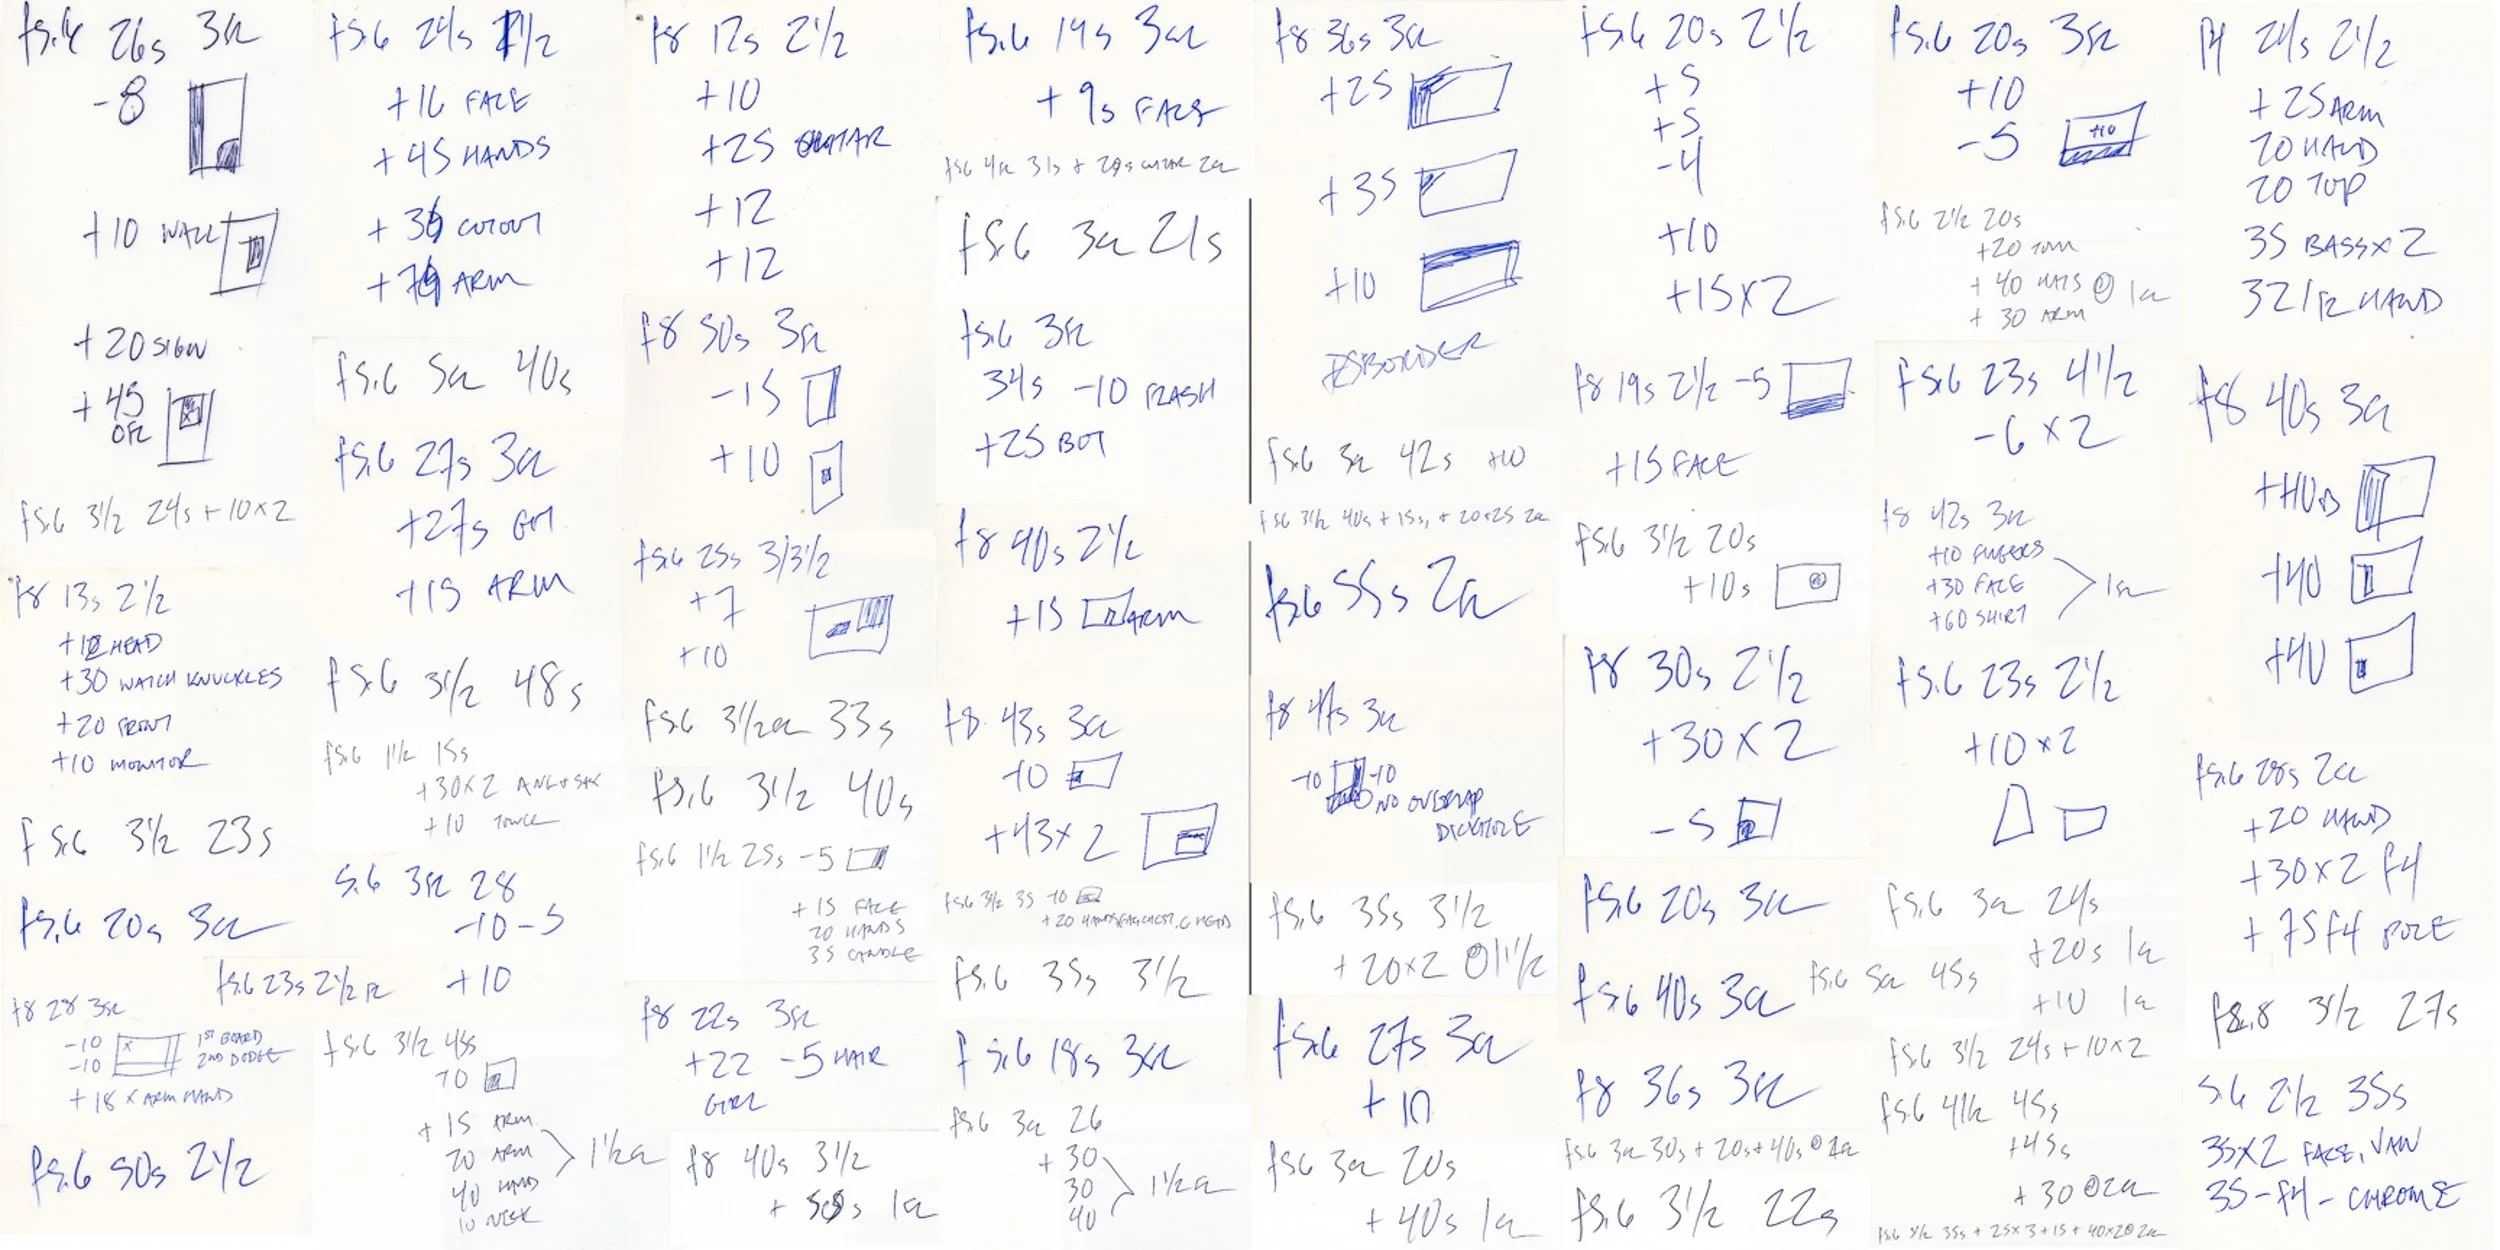 f5.6 26s 3
-8
+10 WALL
+20 SIGN
+45
f5.6 3½ 24s +10x2
f8 13s 2½
HEAD
+30 WATCH KNUCKLES
+20 FRONT
+10 MONITOR
f5.6 3½ 23s
f5.6 20s 3
f8 28 3
-10
-10
1ST BOARD
2ND DODGE
+18 x ARM HAND
f5.6 50s 2½
f5.6 24s
+16 FACE
+45 HANDS
CUTOUT
ARM
f5.6 5 40s
f5.6 27s 3
+27s
+15 ARM
f5.6 3½ 48s
f5.6 1½ 15s
+30x2
+10
5.6 3 28
-10 -5
+10
f5.6 23s 2½
f5.6 3½ 45s
+15 ARM
20 ARM
40 HAND
10 NECK
1½
f8 12s 2½
+10
+25 GUITAR
+12
+12
f8 50s 3
-15
+10
f5.6 25s 3/3½
+7
+10
f5.6 3½ 33s
f5.6 3½ 40s
f5.6 1½ 25s -5
+15 FACE
20 HANDS
35 CANDLE
f8 22s 3
+22 -5 HAIR
GIRL
f8 40s 3½
1
f5.6 19s 3
+9s FACE
f5.6 4 31s
f5.6 3 21s
f5.6 3
34s -10 FLASH
+25 BOT
f8 40s 2½
+15 ARM
f8 43s 3
-10
+43x2
f5.6 3½ 35 -10
+20
f5.6 35s 3½
f5.6 18s 3
f5.6 3 26
+30
30
40
1½
f8 36s 3
+25
+35
+10
f5.6 3 42s +10
f5.6 3½ 40s +15s, +20+25 2
f5.6 55s 2
f8 47s 3
-10 -10
NO OVERLAP
f5.6 35s 3½
+20x2 @1½
f5.6 27s 3
+10
f5.6 3 20s
+40s 1
f5.6 20s 2½
+5
+5
-4
+10
+15x2
f8 19s 2½ -5
+15 FACE
f5.6 3½ 20s
+10s
f8 30s 2½
+30x2
-5
f5.6 20s 3
f5.6 40s 3
f8 36s 3
f5.6 3 30s +20s+40s @
f5.6 3½ 22s
f5.6 20s 3
+10
-5
+10
f5.6 2½ 20s
+20 TOM
+40 HATS @ 1
+30 ARM
f5.6 23s 4½
-6x2
f8 42s 3
+10 FINGERS
+30 FACE
+60 SHIRT
1
f5.6 23s 2½
+10x2
f5.6 3 24s
+20s 1
+10 1
f5.6 5 45s
f5.6 3½ 24s +10x2
f5.6 4½ 45s
+45s
+30 @2
f4 24s 2½
+25 ARM
20 HAND
20 TOP
35 BASSx2
HAND
f8 40s 3
+40
+40
+40
f5.6 28s 2
+20 HAND
+30x2 f4
+75 f4 POLE
3½ 27s
5.6 2½ 35s
35x2 FACE, VAN
35-f4-CHROME